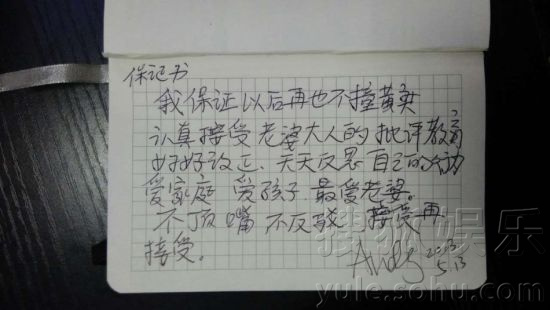 保证书
我保证以后再也不撞黄奕
认真接受老婆大人的批评教育
好好改正、天天反思自己的
爱家庭 爱孩子 最爱老婆。
不顶嘴 不反驳 接受再
接受。
Andy 2013
5.13
搜狐娱乐
yule.sohu.com